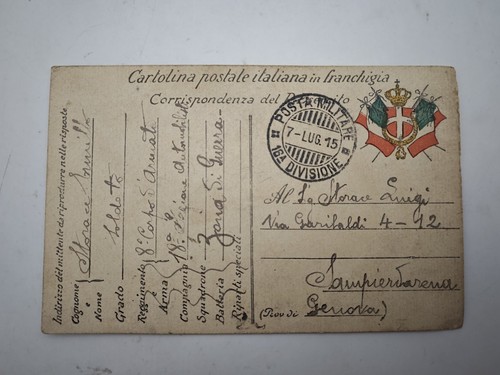 Cartolina postale italiana in franchigia
Corrispondenza del R. Esercito
POSTA MILITARE
7-LUG.15
16A DIVISIONE
Al Sig Storace Luigi
Via Garibaldi 4-12
Sampierdarena
Genova
(Prov di )
Indirizzo del mittente da riprodurre nelle risposte
Cognome e Nome Storace
Grado Soldato
Reggimento 8° Corpo d'Armata
Arma
Compagnia 18a Sezione
Squadrone Zona di Guerra
Batteria
Riparti speciali